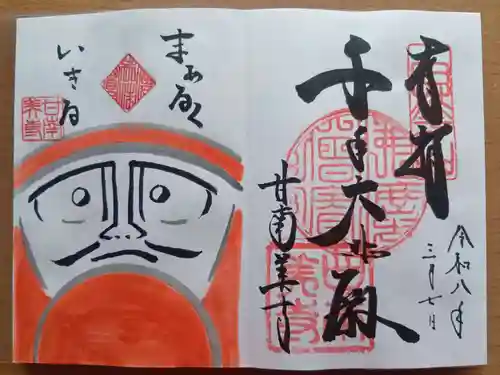 奉拝
令和八年
三月七日
千手大悲殿
甘南美寺
まあるく
いきる
甘南
美寺